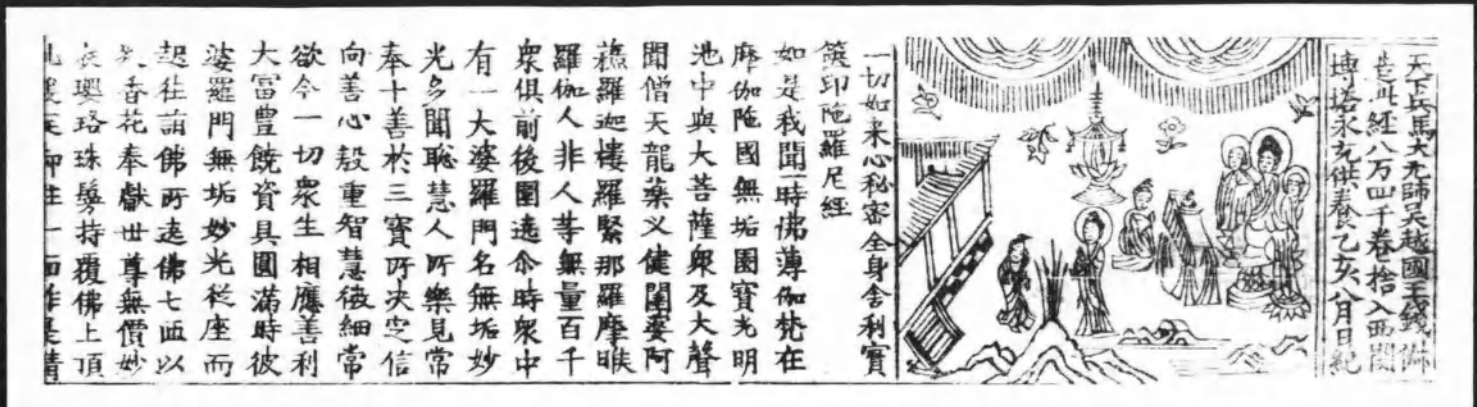 天下兵馬大元帥吳越國王錢俶
造此經八万四千卷捨入西關
塼塔永充供養乙亥八月日紀
一切如来心秘密全身舍利寶
篋印陁羅尼經
如是我聞一時佛薄伽梵在
摩伽陁國無垢園寶光明
池中與大菩薩衆及大聲
聞僧天龍藥义健闥婆阿
蘓羅迦樓羅緊那羅摩睺
羅伽人非人等無量百千
衆俱前後圍遶尒時衆中
有一大婆羅門名無垢妙
光多聞聡慧人所樂見常
奉十善於三寶所决定信
向善心殷重智慧微細常
欲令一切衆生相應善利
大富豊饒資具圓滿時彼
婆羅門無垢妙光從座而
起往詣佛所遶佛七匝以
香花奉獻世尊無價妙
衣瓔珞珠鬘持覆佛上頂
住一面作是請